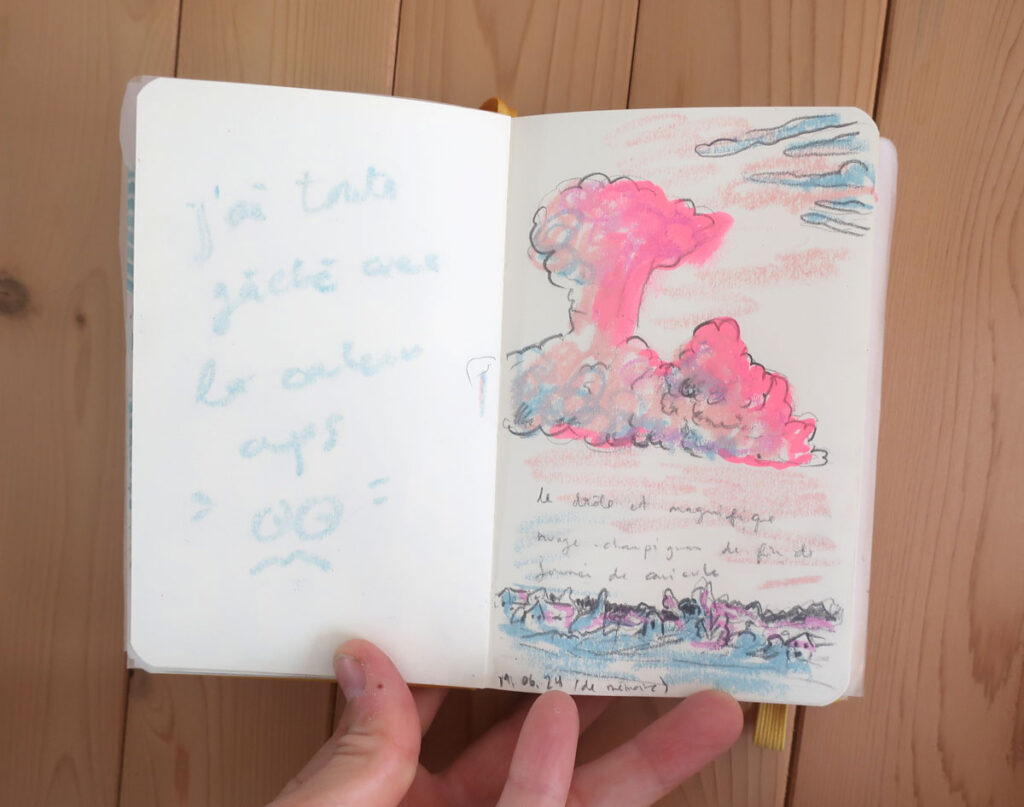 j'ai toute
gâché avec
la couleur
après
le drôle et magnifique
nuage-champignon de fin de
journée de canicule
19.06.24 (de mémoire)